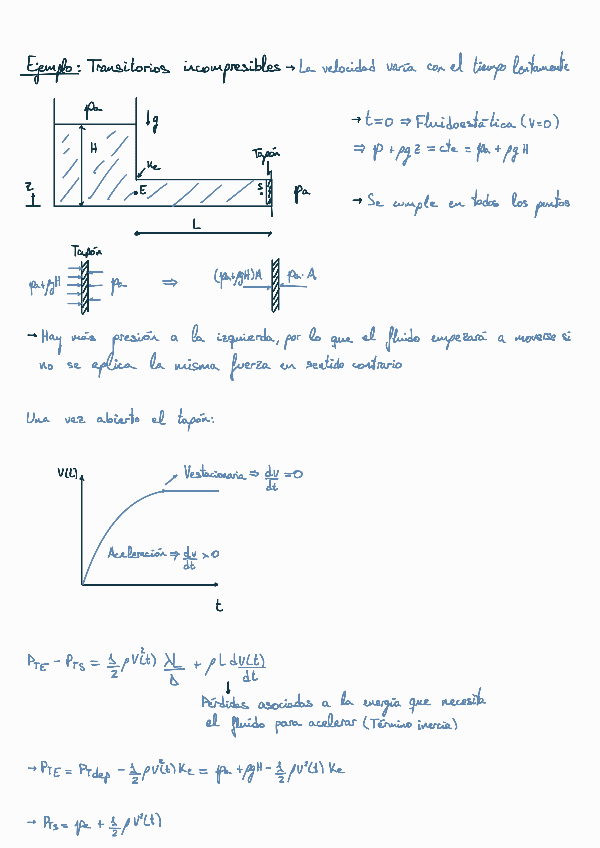 Ejemplo: Transitorios incompresibles → La velocidad varía con el tiempo lentamente
pa
↓g
→ t=0 ⇒ Fluidoestática (v=0)
H
Ke
Tapón
⇒ p + ρgz = cte = pa + ρgH
z
E
S
pa
→ Se cumple en todos los puntos
L
Tapón
pa+ρgH
pa
⇒
(pa+ρgH)A
pa·A
→ Hay más presión a la izquierda, por lo que el fluido empezará a moverse si
no se aplica la misma fuerza en sentido contrario
Una vez abierto el tapón:
V(t)
Vestacionaria ⇒ dv/dt = 0
Aceleración ⇒ dv/dt > 0
t
PTE - PTS = 1/2 ρV²(t) λL/D + ρL dv(t)/dt
Pérdidas asociadas a la energía que necesita
el fluido para acelerar (Término inercia)
→ PTE = PTdep - 1/2 ρV²(t) Ke = pa + ρgH - 1/2 ρV²(t) Ke
→ PTS = pa + 1/2 ρV²(t)